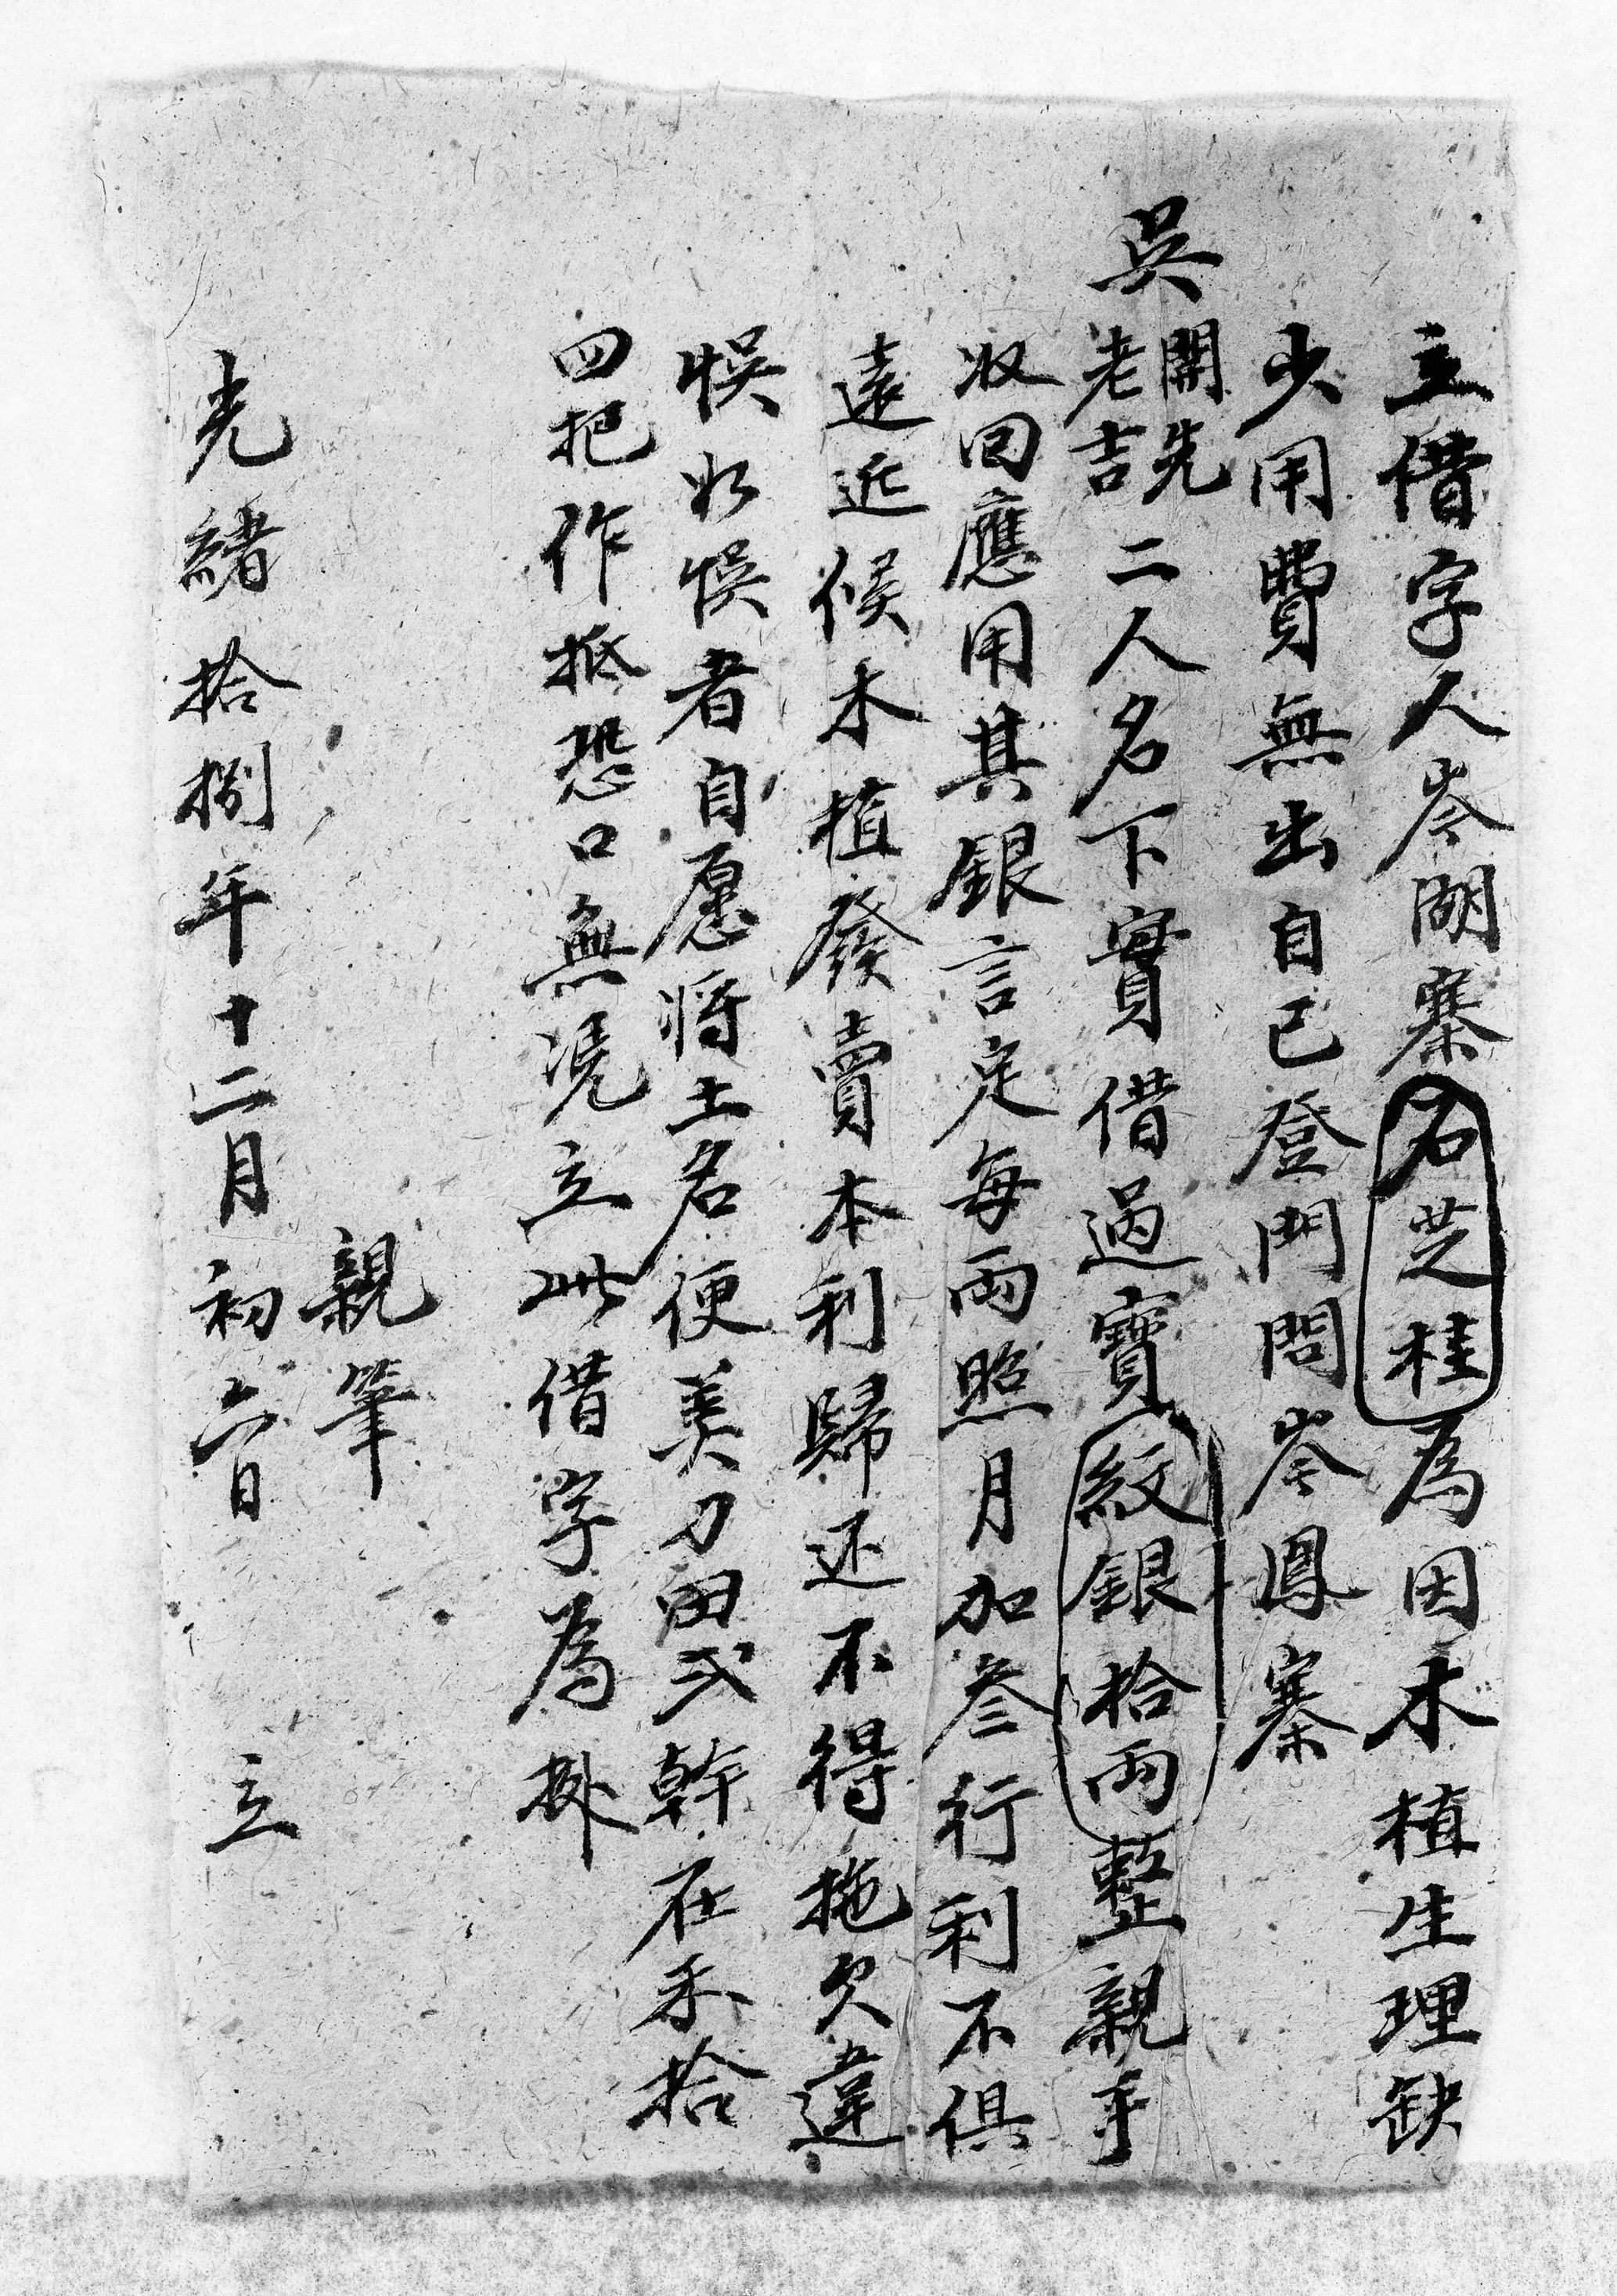 立借字人岑湖寨石芝桂為因木植生理缺
少用費無出自己登門問岑鳳寨
吳開先老吉二人名下實借過寶紋銀拾両整親手
收回應用其銀言定每両照月加叁行利不俱
遠近候木植發賣本利歸还不得拖欠違
悮如悮者自愿将土名便美刀田弐幹在禾拾
四把作抵恐口無凴立此借字為㨿
親筆
光緒拾捌年十二月初六日 立